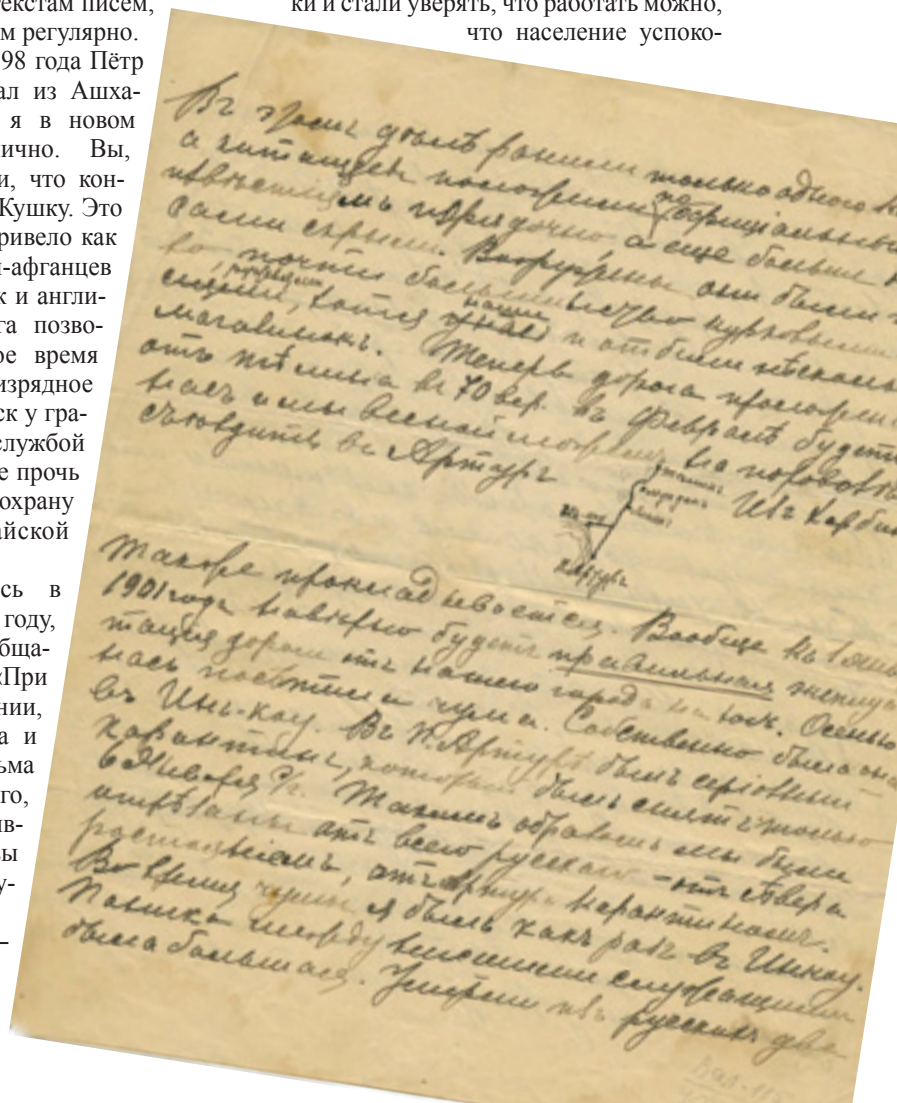 текстам писем,
м регулярно.
98 года Пётр
ал из Ашха-
я в новом
ично. Вы,
и, что кон-
Кушку. Это
ривело как
-афганцев
к и англи-
га позво-
ое время
изрядное
ск у гра-
службой
е прочь
охрану
айской
сь в
году,
обща-
«При
нии,
а и
ьма
го,
ив-
вы
у-
ки и стали уверять, что работать можно,
что население успоко-
Въ этомъ дѣлѣ ранили только одного
а китайцевъ положили по оффиціальнымъ
извѣстіямъ порядочно, а еще больше
сами скрыли. Вооружены они были
почти большинство курковыми
наши и отбили нѣсколько
Теперь дорога проложена
отъ въ 70 вер. въ Февралѣ будетъ у
насъ и мы весной можемъ на паровозѣ
съѣздить въ Артуръ Изъ Харбина
П. Артуръ
также прокладывается. Вообще къ 1 января
1901 года навѣрно будетъ правильная эксплуа-
тація дороги отъ нашего города на югъ. Осенью
насъ посѣтила чума. Собственно была она
въ Инъ-коу. Въ П. Артурѣ былъ серіозный
карантинъ, который былъ снятъ только
6 Января с/г. Такимъ образомъ мы были
отрѣзаны отъ всего русскаго – отъ сѣвера
разстояніемъ, отъ Артура карантиномъ.
Во время чумы я былъ какъ разъ въ Инкоу.
Паника между нашими служащими
была большая. Умерли изъ русскихъ два